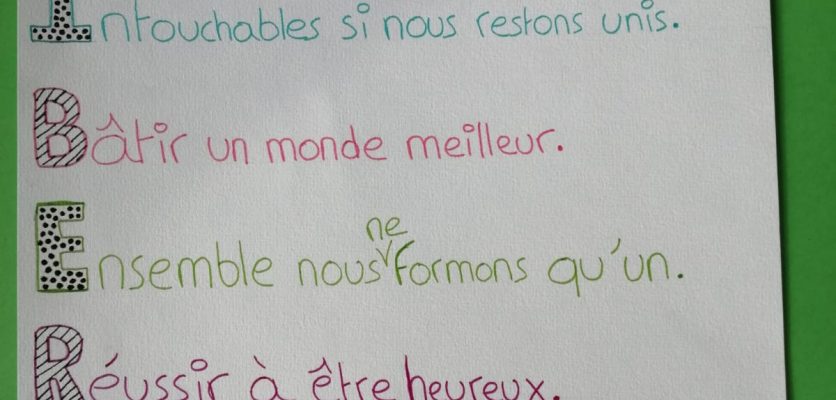 Intouchables si nous restons unis.
Bâtir un monde meilleur.
Ensemble nous ne formons qu'un.
Réussir à être heureux.